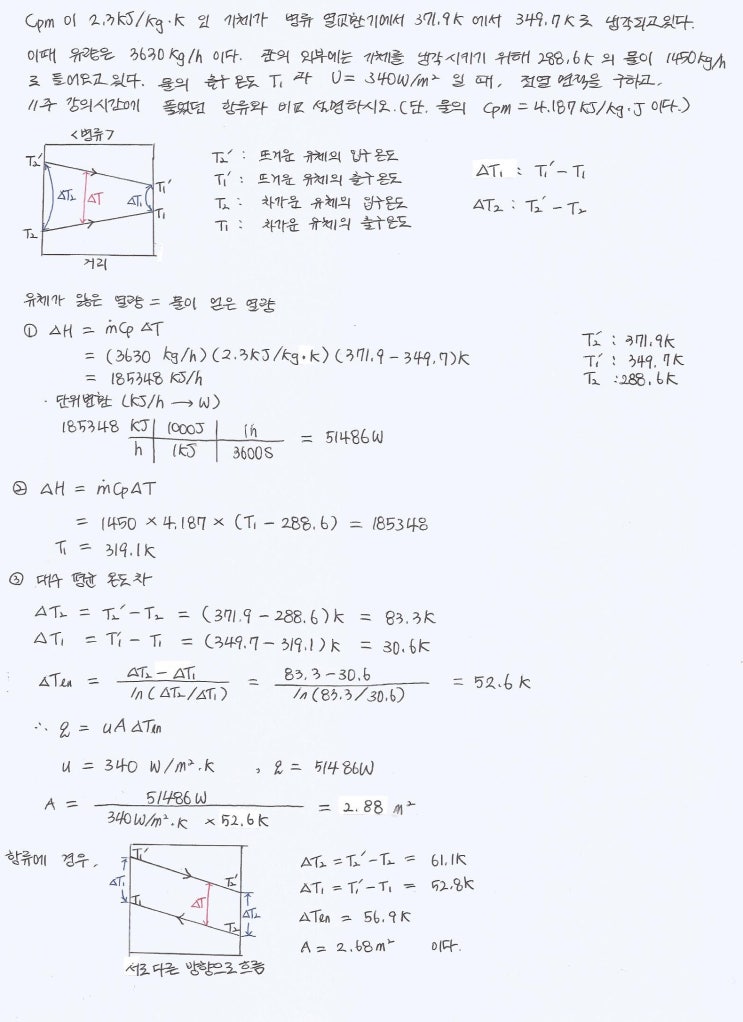 Cpm 이 2.3KJ/kg·K 인 기체가 병류 열교환기에서 371.9K 에서 349.7K로 냉각되고있다.
이때 유량은 3630kg/h 이다. 관의 외부에는 기체를 냉각시키기 위해 288.6K 의 물이 1450kg/h
로 들어오고 있다. 물의 출구온도 T₁ 과 U = 340W/m² 일 때, 전열 면적을 구하고,
11주 강의시간에 풀었던 향류와 비교 설명하시오. (단, 물의 Cpm = 4.187KJ/kg·J 이다.)
<병류>
T₂′
T₁′
ΔT₂
ΔT
ΔT₁
T₁
T₂
거리
T₂′ : 뜨거운 유체의 입구온도
T₁′ : 뜨거운 유체의 출구온도
T₂ : 차가운 유체의 입구온도
T₁ : 차가운 유체의 출구온도
ΔT₁ : T₁′ - T₁
ΔT₂ : T₂′ - T₂
유체가 잃은 열량 = 물이 얻은 열량
① ΔH = ṁCpΔT
= (3630 kg/h)(2.3KJ/kg·K)(371.9-349.7)K
= 185348 KJ/h
T₂′ : 371.9K
T₁′ : 349.7K
T₂ : 288.6K
· 단위변환 (KJ/h → W)
185348 KJ | 1000J | 1h
h | 1KJ | 3600S = 51486W
② ΔH = ṁCpΔT
= 1450 × 4.187 × (T₁ - 288.6) = 185348
T₁ = 319.1K
③ 대수 평균 온도차
ΔT₂ = T₂′ - T₂ = (371.9 - 288.6)K = 83.3K
ΔT₁ = T₁′ - T₁ = (349.7 - 319.1)K = 30.6K
ΔTen = ΔT₂ - ΔT₁ / ln(ΔT₂/ΔT₁) = 83.3 - 30.6 / ln(83.3/30.6) = 52.6K
∴ q = uAΔTen
u = 340 W/m²·K , q = 51486W
A = 51486W / 340W/m²·K × 52.6K = 2.88 m²
향류에 경우,
T₁′
T₂′
ΔT₁
T₁
ΔT
ΔT₂
T₂
서로 다른 방향으로 흐름
ΔT₂ = T₂′ - T₂ = 61.1K
ΔT₁ = T₁′ - T₁ = 52.8K
ΔTen = 56.9K
A = 2.68m² 이다.